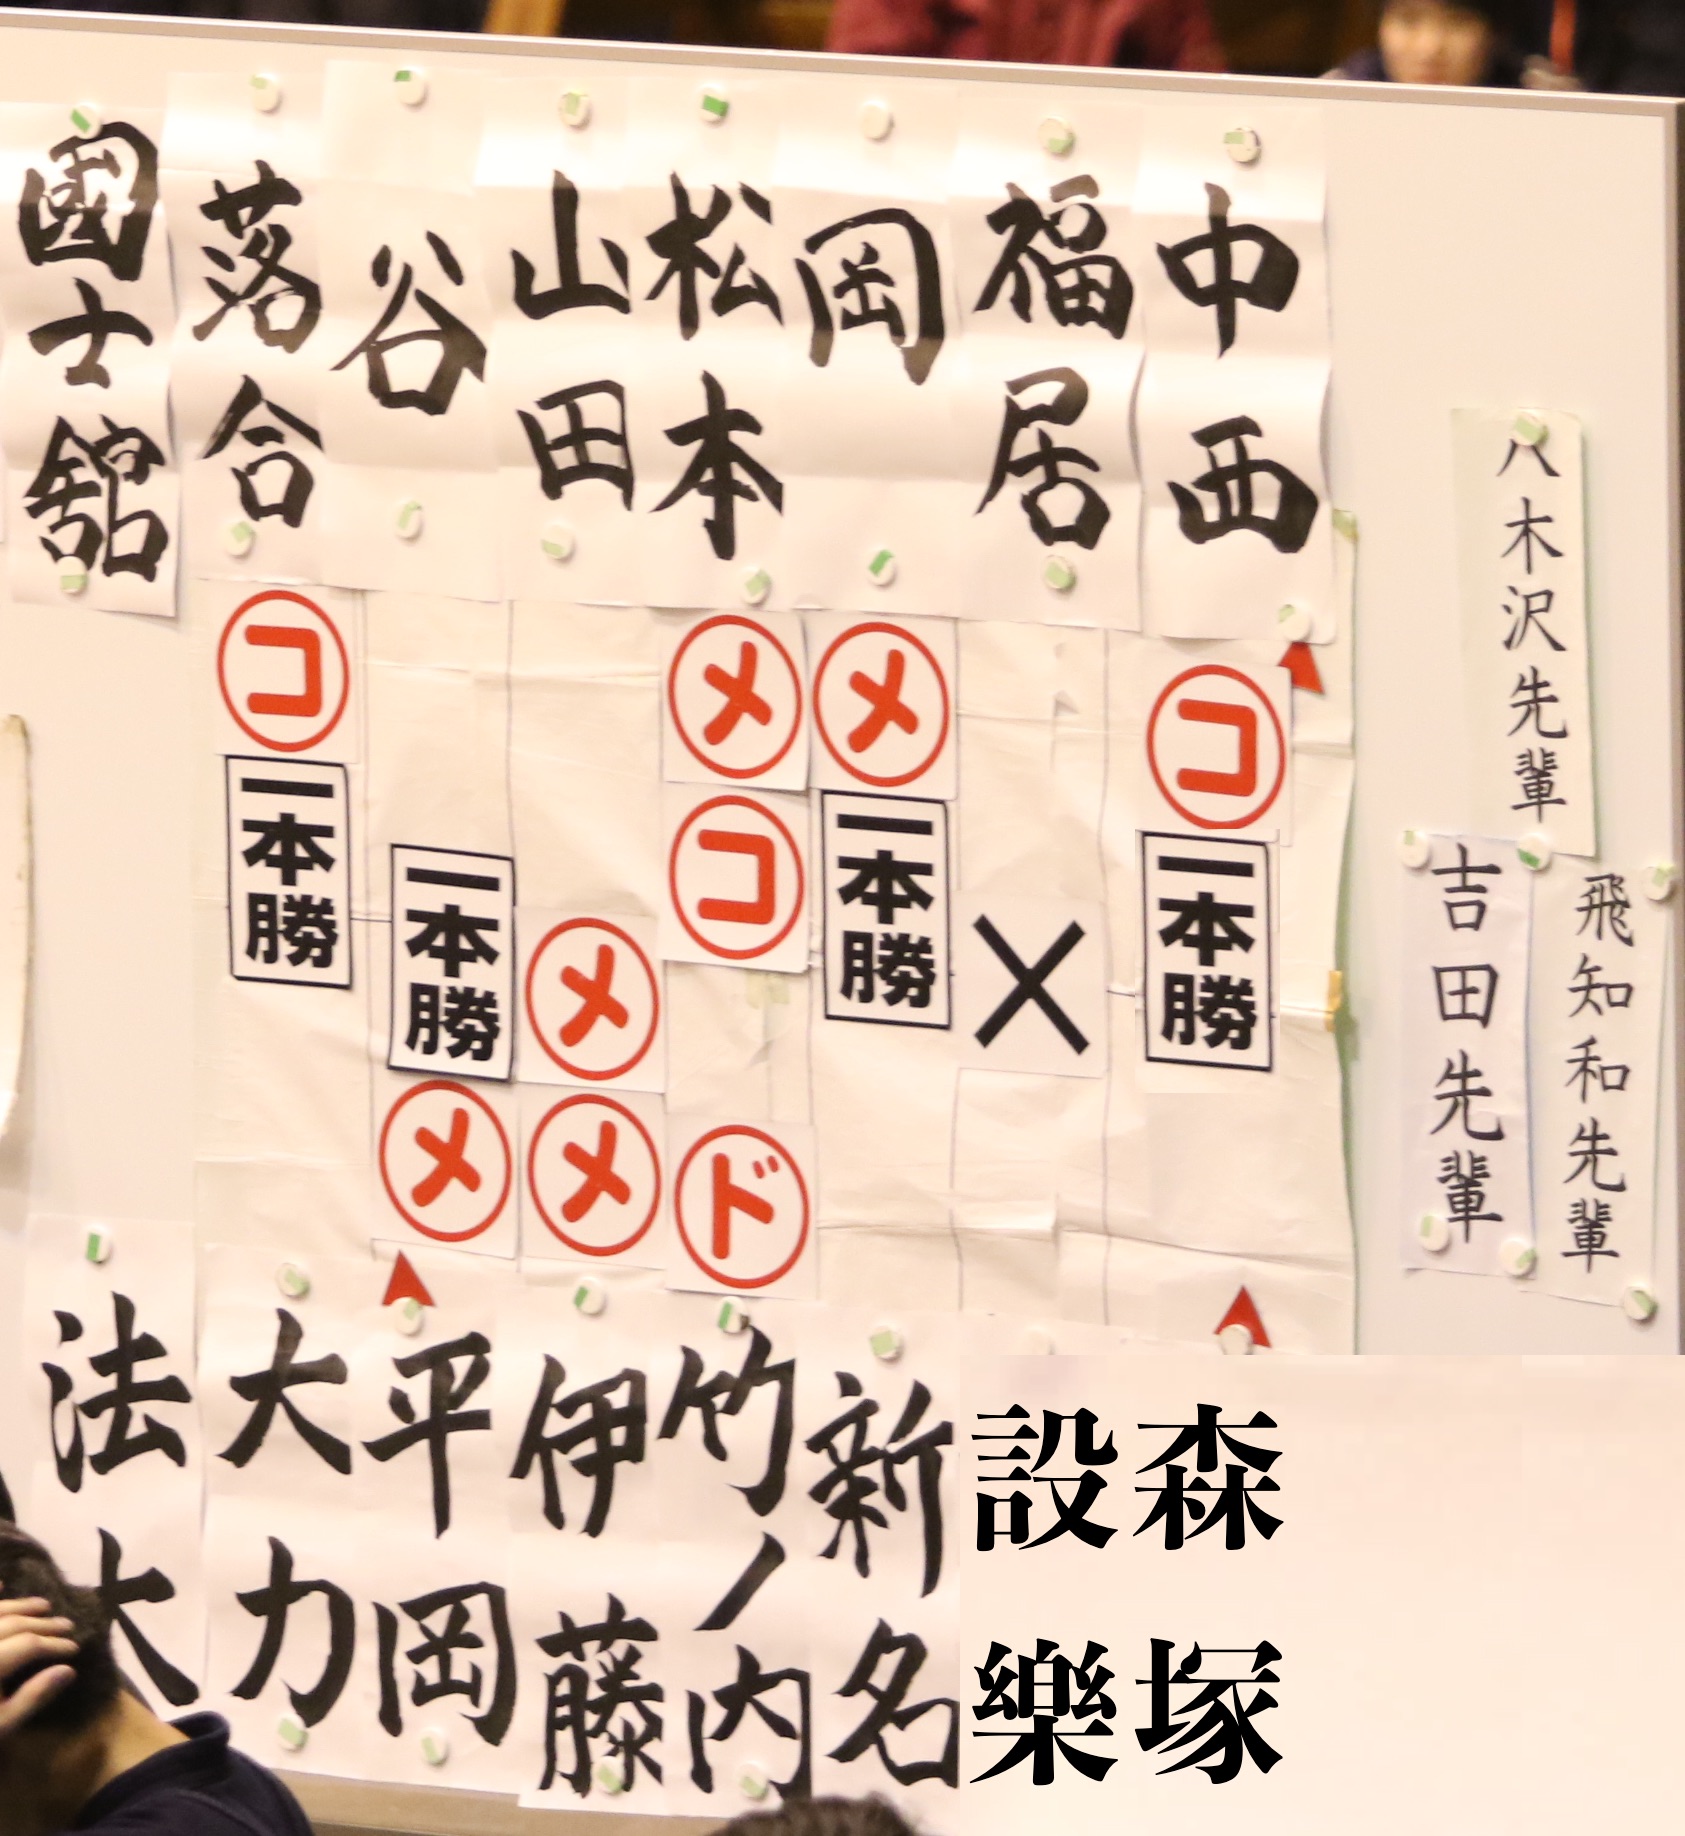 八木沢先輩
飛知和先輩
吉田先輩
中西
福居
岡
松本
山田
谷
落合
國士舘
コ
一本勝
×
メ
一本勝
メ
コ
ド
メ
メ
一本勝
メ
コ
一本勝
森塚
設樂
新名
竹ノ内
伊藤
平岡
大力
法大